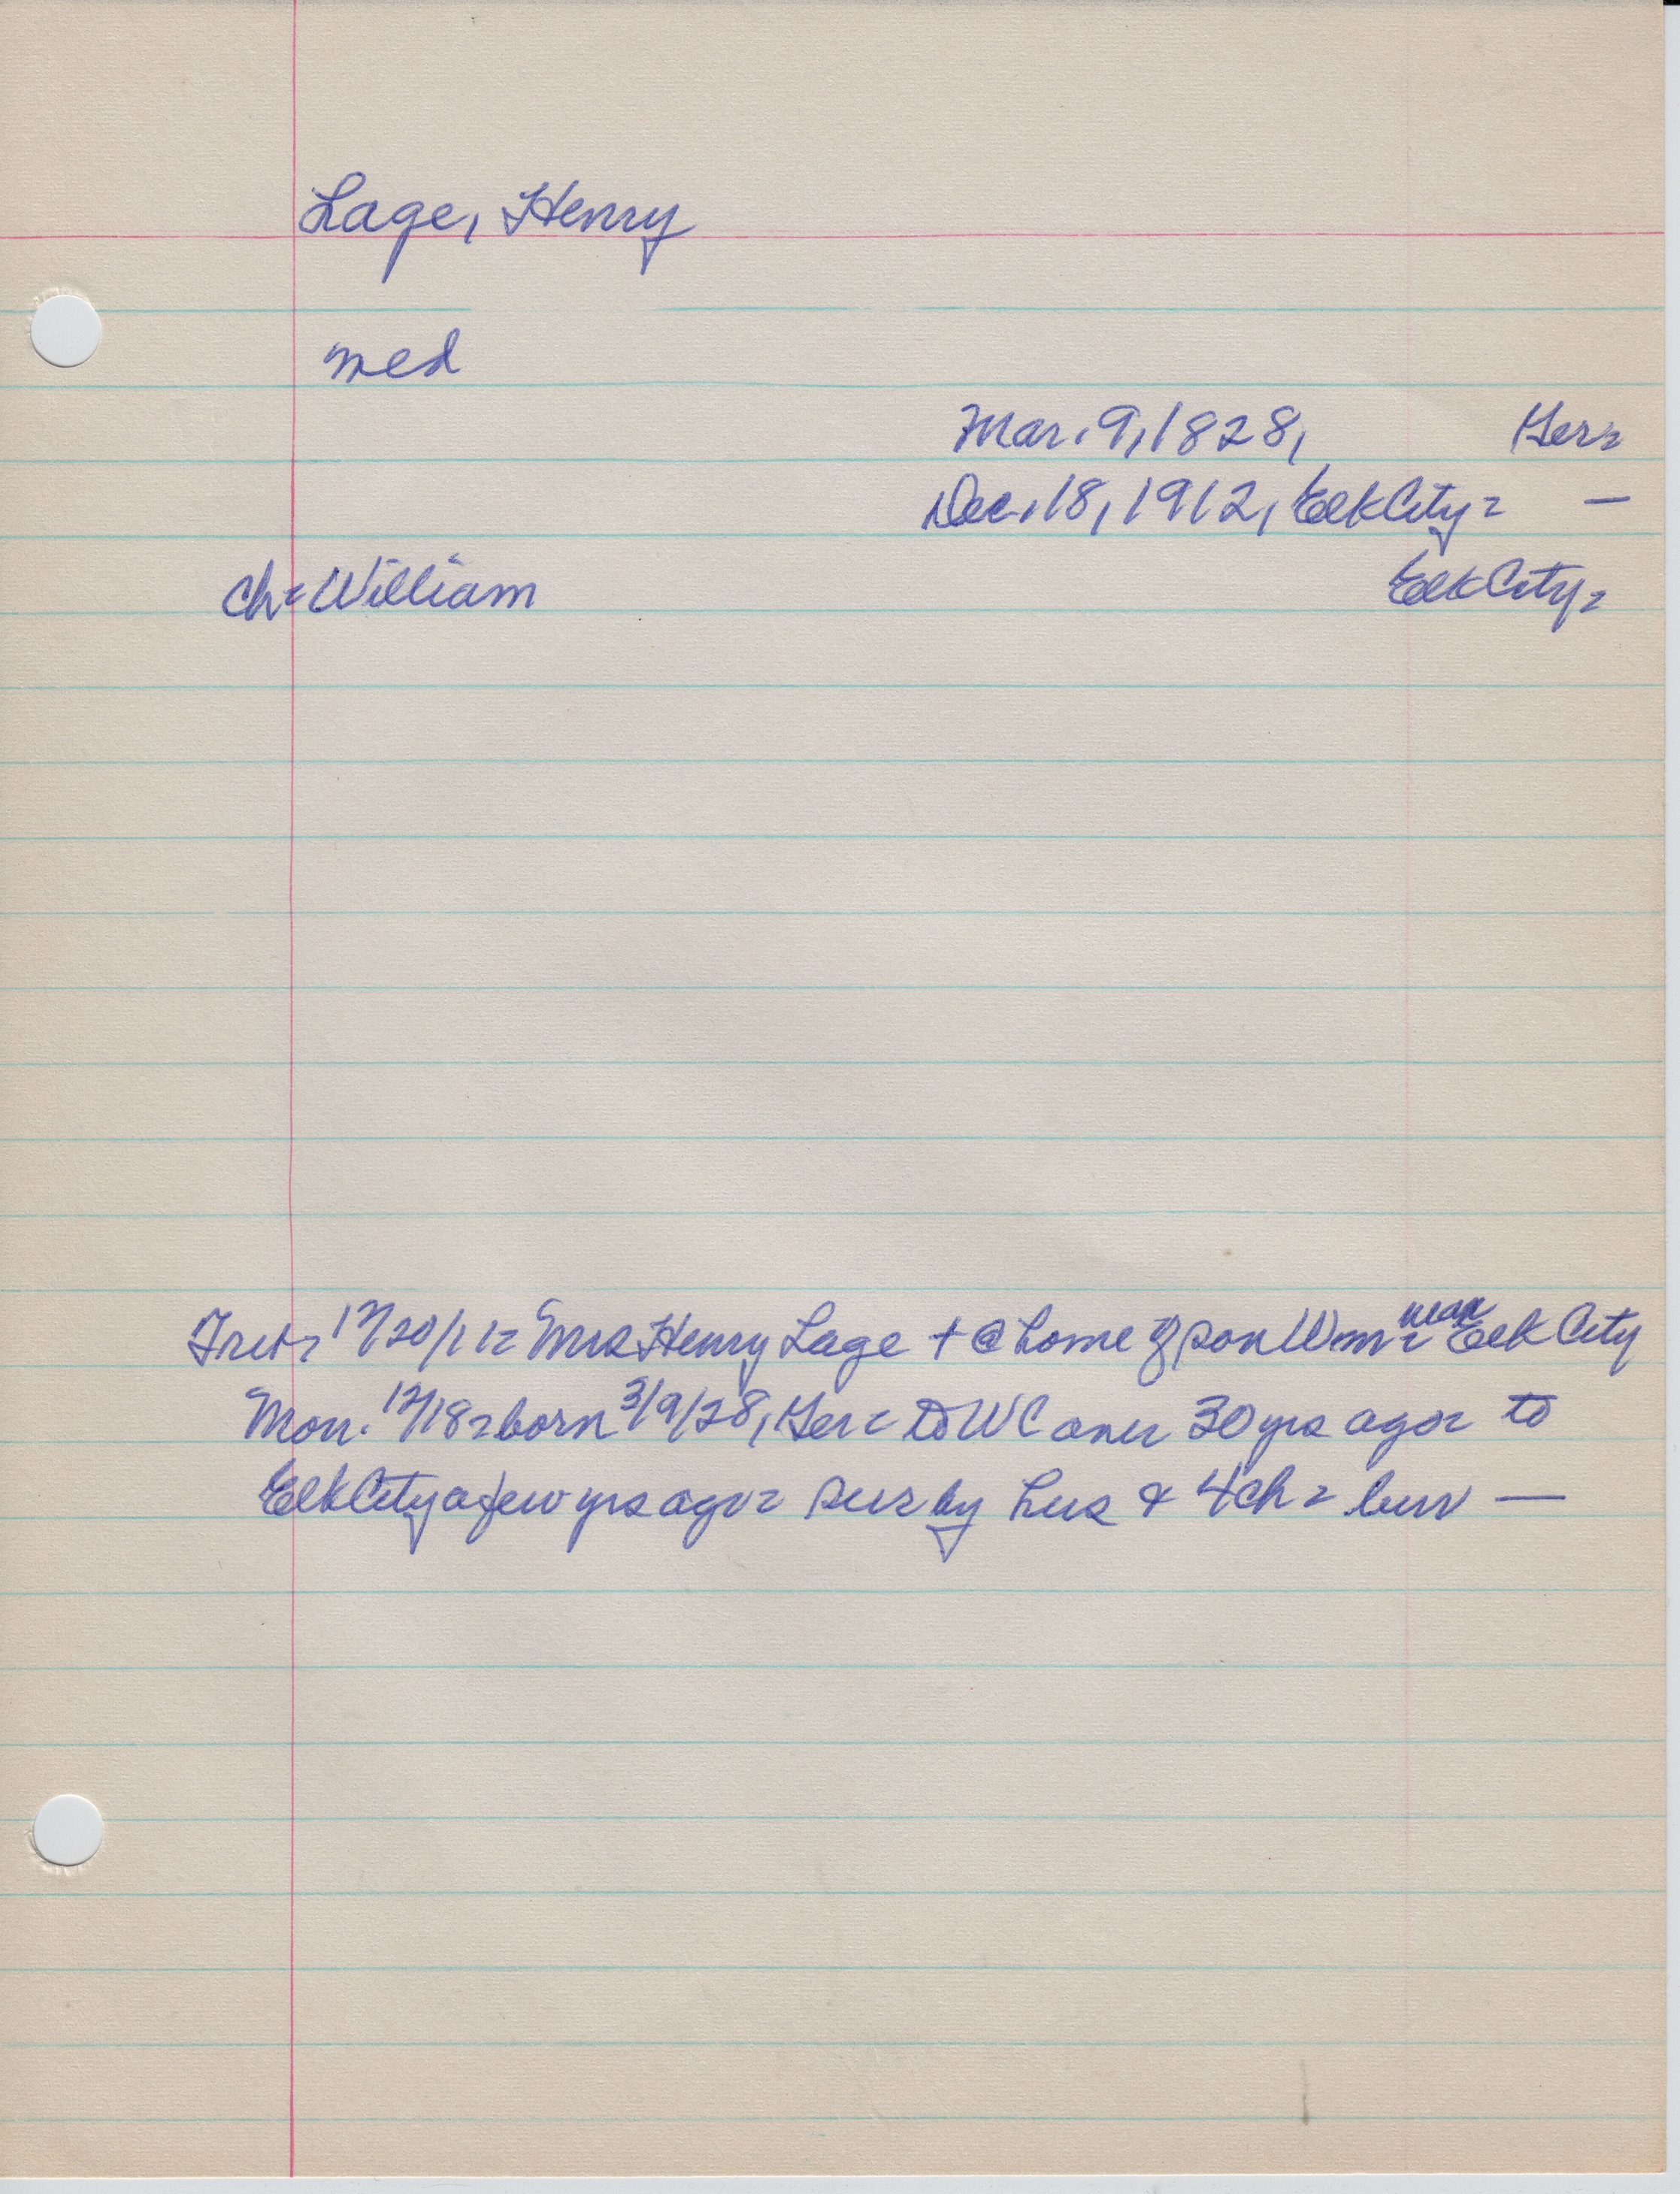 Lage, Henry
med
Mar. 9, 1828, Ger=
Dec. 18, 1912, Elk City= —
ch= William Elk City=
12/20/12= Mrs Henry Lage + @ home of son Wm= near Elk City
Mon. 12/18= born 3/9/28, Ger= to WC over 30 yrs ago= to
Elk City a few yrs ago= sur by hus & 4 ch= bur —